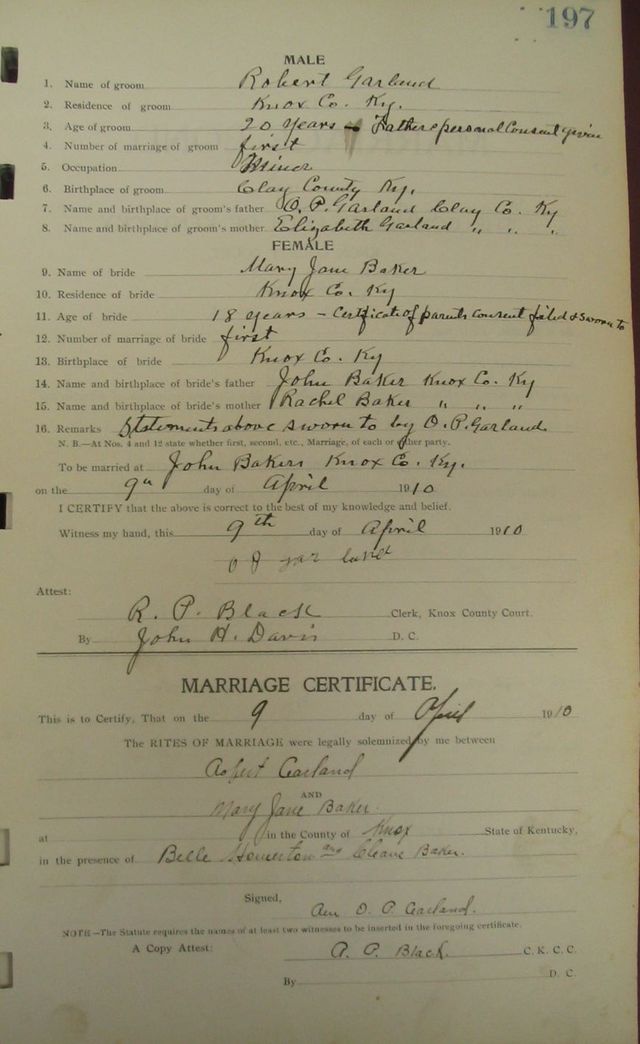 197
MALE
1. Name of groom Robert Garland
2. Residence of groom Knox Co. Ky.
3. Age of groom 20 years – Fathers personal Consent given
4. Number of marriage of groom first
5. Occupation Miner
6. Birthplace of groom Clay County Ky.
7. Name and birthplace of groom's father O. P. Garland Clay Co. Ky
8. Name and birthplace of groom's mother Elizabeth Garland " " "
FEMALE
9. Name of bride Mary Jane Baker
10. Residence of bride Knox Co. Ky
11. Age of bride 18 years – Certificate of parents consent filed & sworn to
12. Number of marriage of bride first
13. Birthplace of bride Knox Co. Ky
14. Name and birthplace of bride's father John Baker Knox Co. Ky
15. Name and birthplace of bride's mother Rachel Baker " " "
16. Remarks Statements above sworn to by O. P. Garland
N. B.—At Nos. 4 and 12 state whether first, second, etc., Marriage, of each or other party.
To be married at John Bakers Knox Co. Ky.
on the day of April 1910
I CERTIFY that the above is correct to the best of my knowledge and belief.
Witness my hand, this 9th day of April 1910
Attest:
R. P. Black Clerk, Knox County Court.
By John H. Davis D. C.
MARRIAGE CERTIFICATE.
This is to Certify, That on the 9 day of April 1910
The RITES OF MARRIAGE were legally solemnized by me between
Garland
AND
Mary Jane Baker.
at in the County of Knox State of Kentucky,
in the presence of Belle and Cleave Baker.
Signed,
O. P. Garland.
NOTE—The Statute requires the names of at least two witnesses to be inserted in the foregoing certificate.
A Copy Attest: Black C. K. C. C.
By D. C.